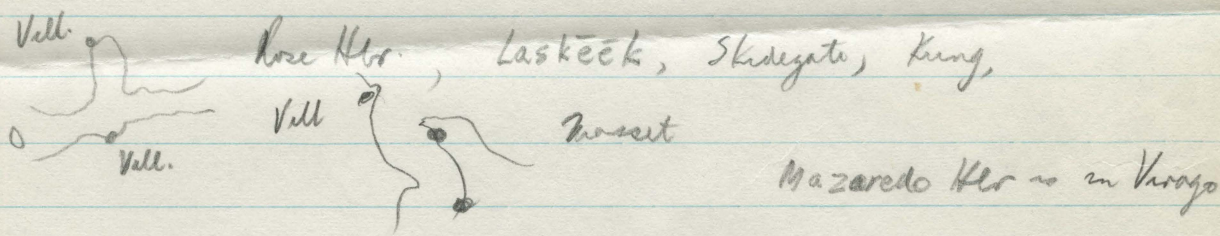 Vill.
Rose Hbr., Laskēēk, Skidegate, Kung,
Vill.
Vill
Masset
Mazaredo Hbr is in Virago